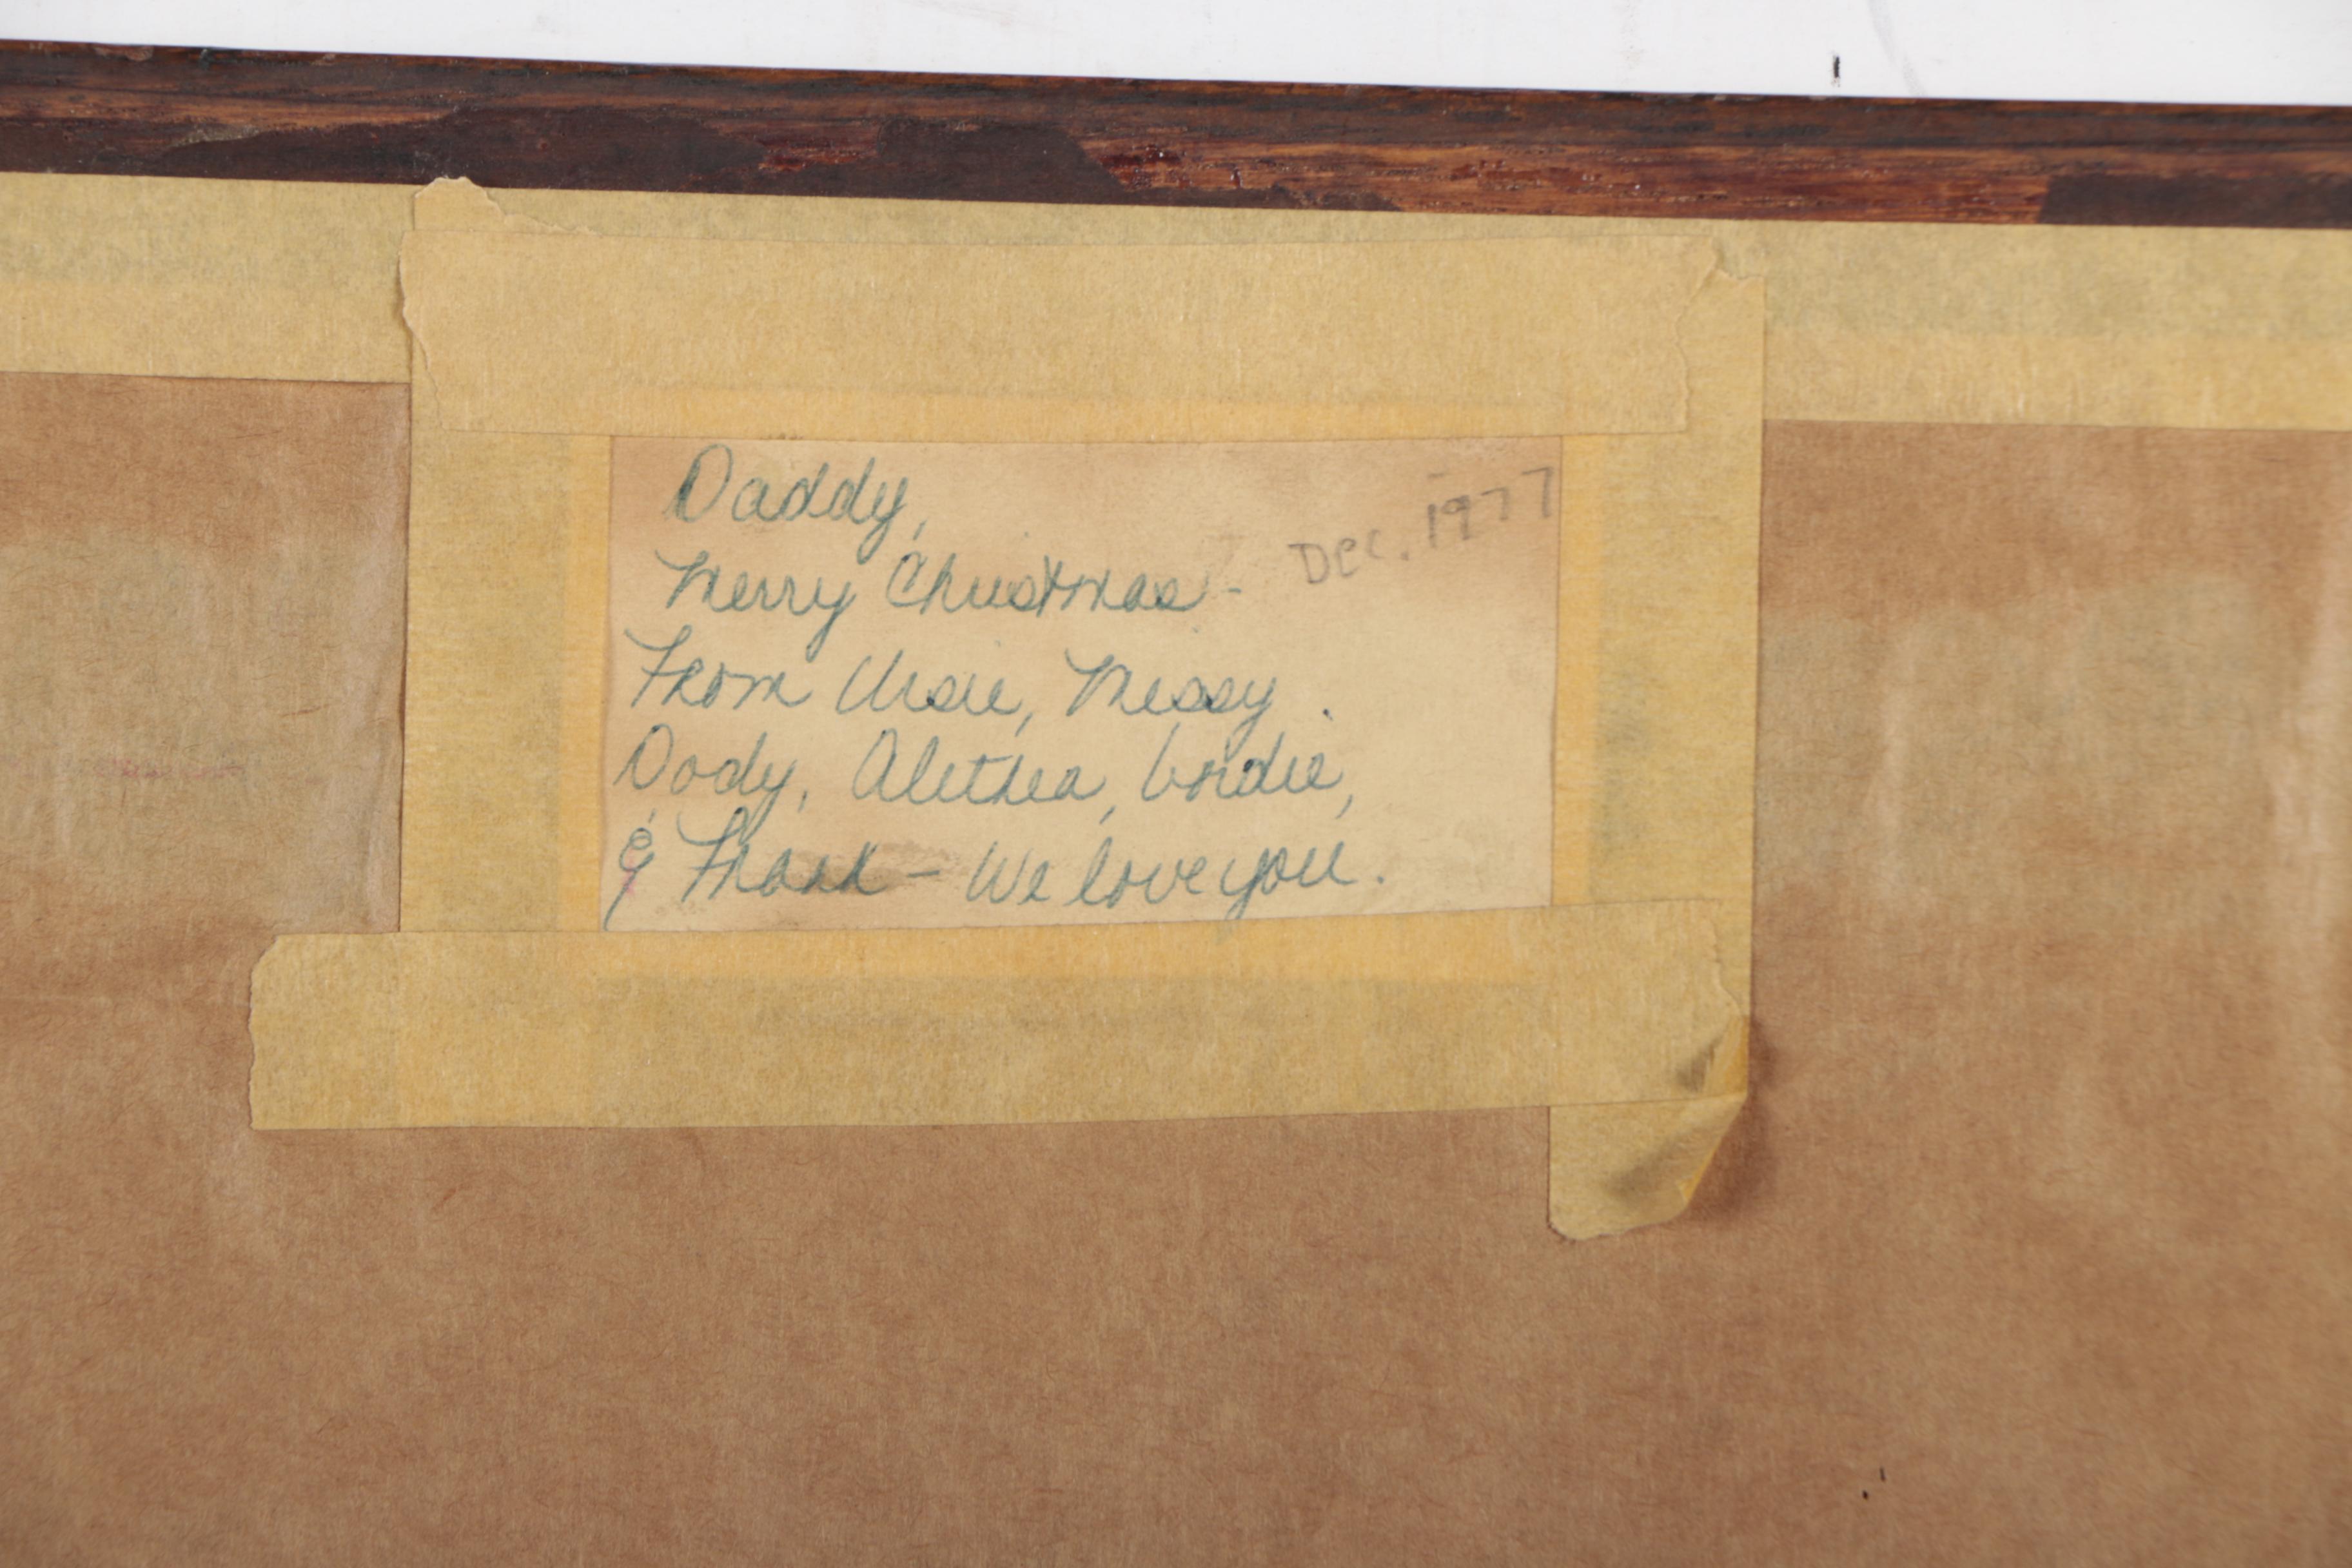 Daddy,
Merry Christmas - Dec. 1977
From Ursie, Missy.
Dody, Alethea,
& Frank - We love you.